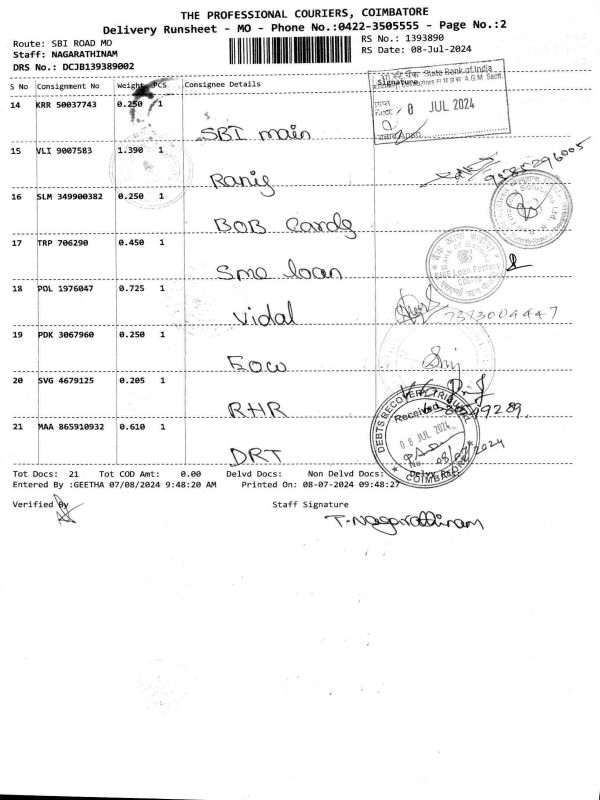 THE PROFESSIONAL COURIERS, COIMBATORE
Delivery Runsheet - MO - Phone No.:0422-3505555 - Page No.:2
Route: SBI ROAD MO
RS No.: 1393890
Staff: NAGARATHINAM
RS Date: 08-Jul-2024
DRS No.: DCJB139389002
S No Consignment No Weight PCS Consignee Details Signature
State Bank of India
A.G.M. Sectt.
8 JUL 2024
14 KRR 50037743 0.250 1
SBI main
15 VLI 9007583 1.390 1
Ranig
9080296005
16 SLM 349900382 0.250 1
BOB Cards
17 TRP 706290 0.450 1
Sme loan
18 POL 1976047 0.725 1
Vidal
7373004447
19 PDK 3067960 0.250 1
Eow
20 SVG 4679125 0.205 1
RHR
21 MAA 865910932 0.610 1
DRT
DEBTS RECOVERY TRIBUNAL
Received
08 JUL 2024
No. 08/07/2024
COIMBATORE
Tot Docs: 21 Tot COD Amt: 0.00 Delvd Docs: Non Delvd Docs:
Entered By :GEETHA 07/08/2024 9:48:20 AM Printed On: 08-07-2024 09:48:27
Verified By Staff Signature
T. Nagarathinam